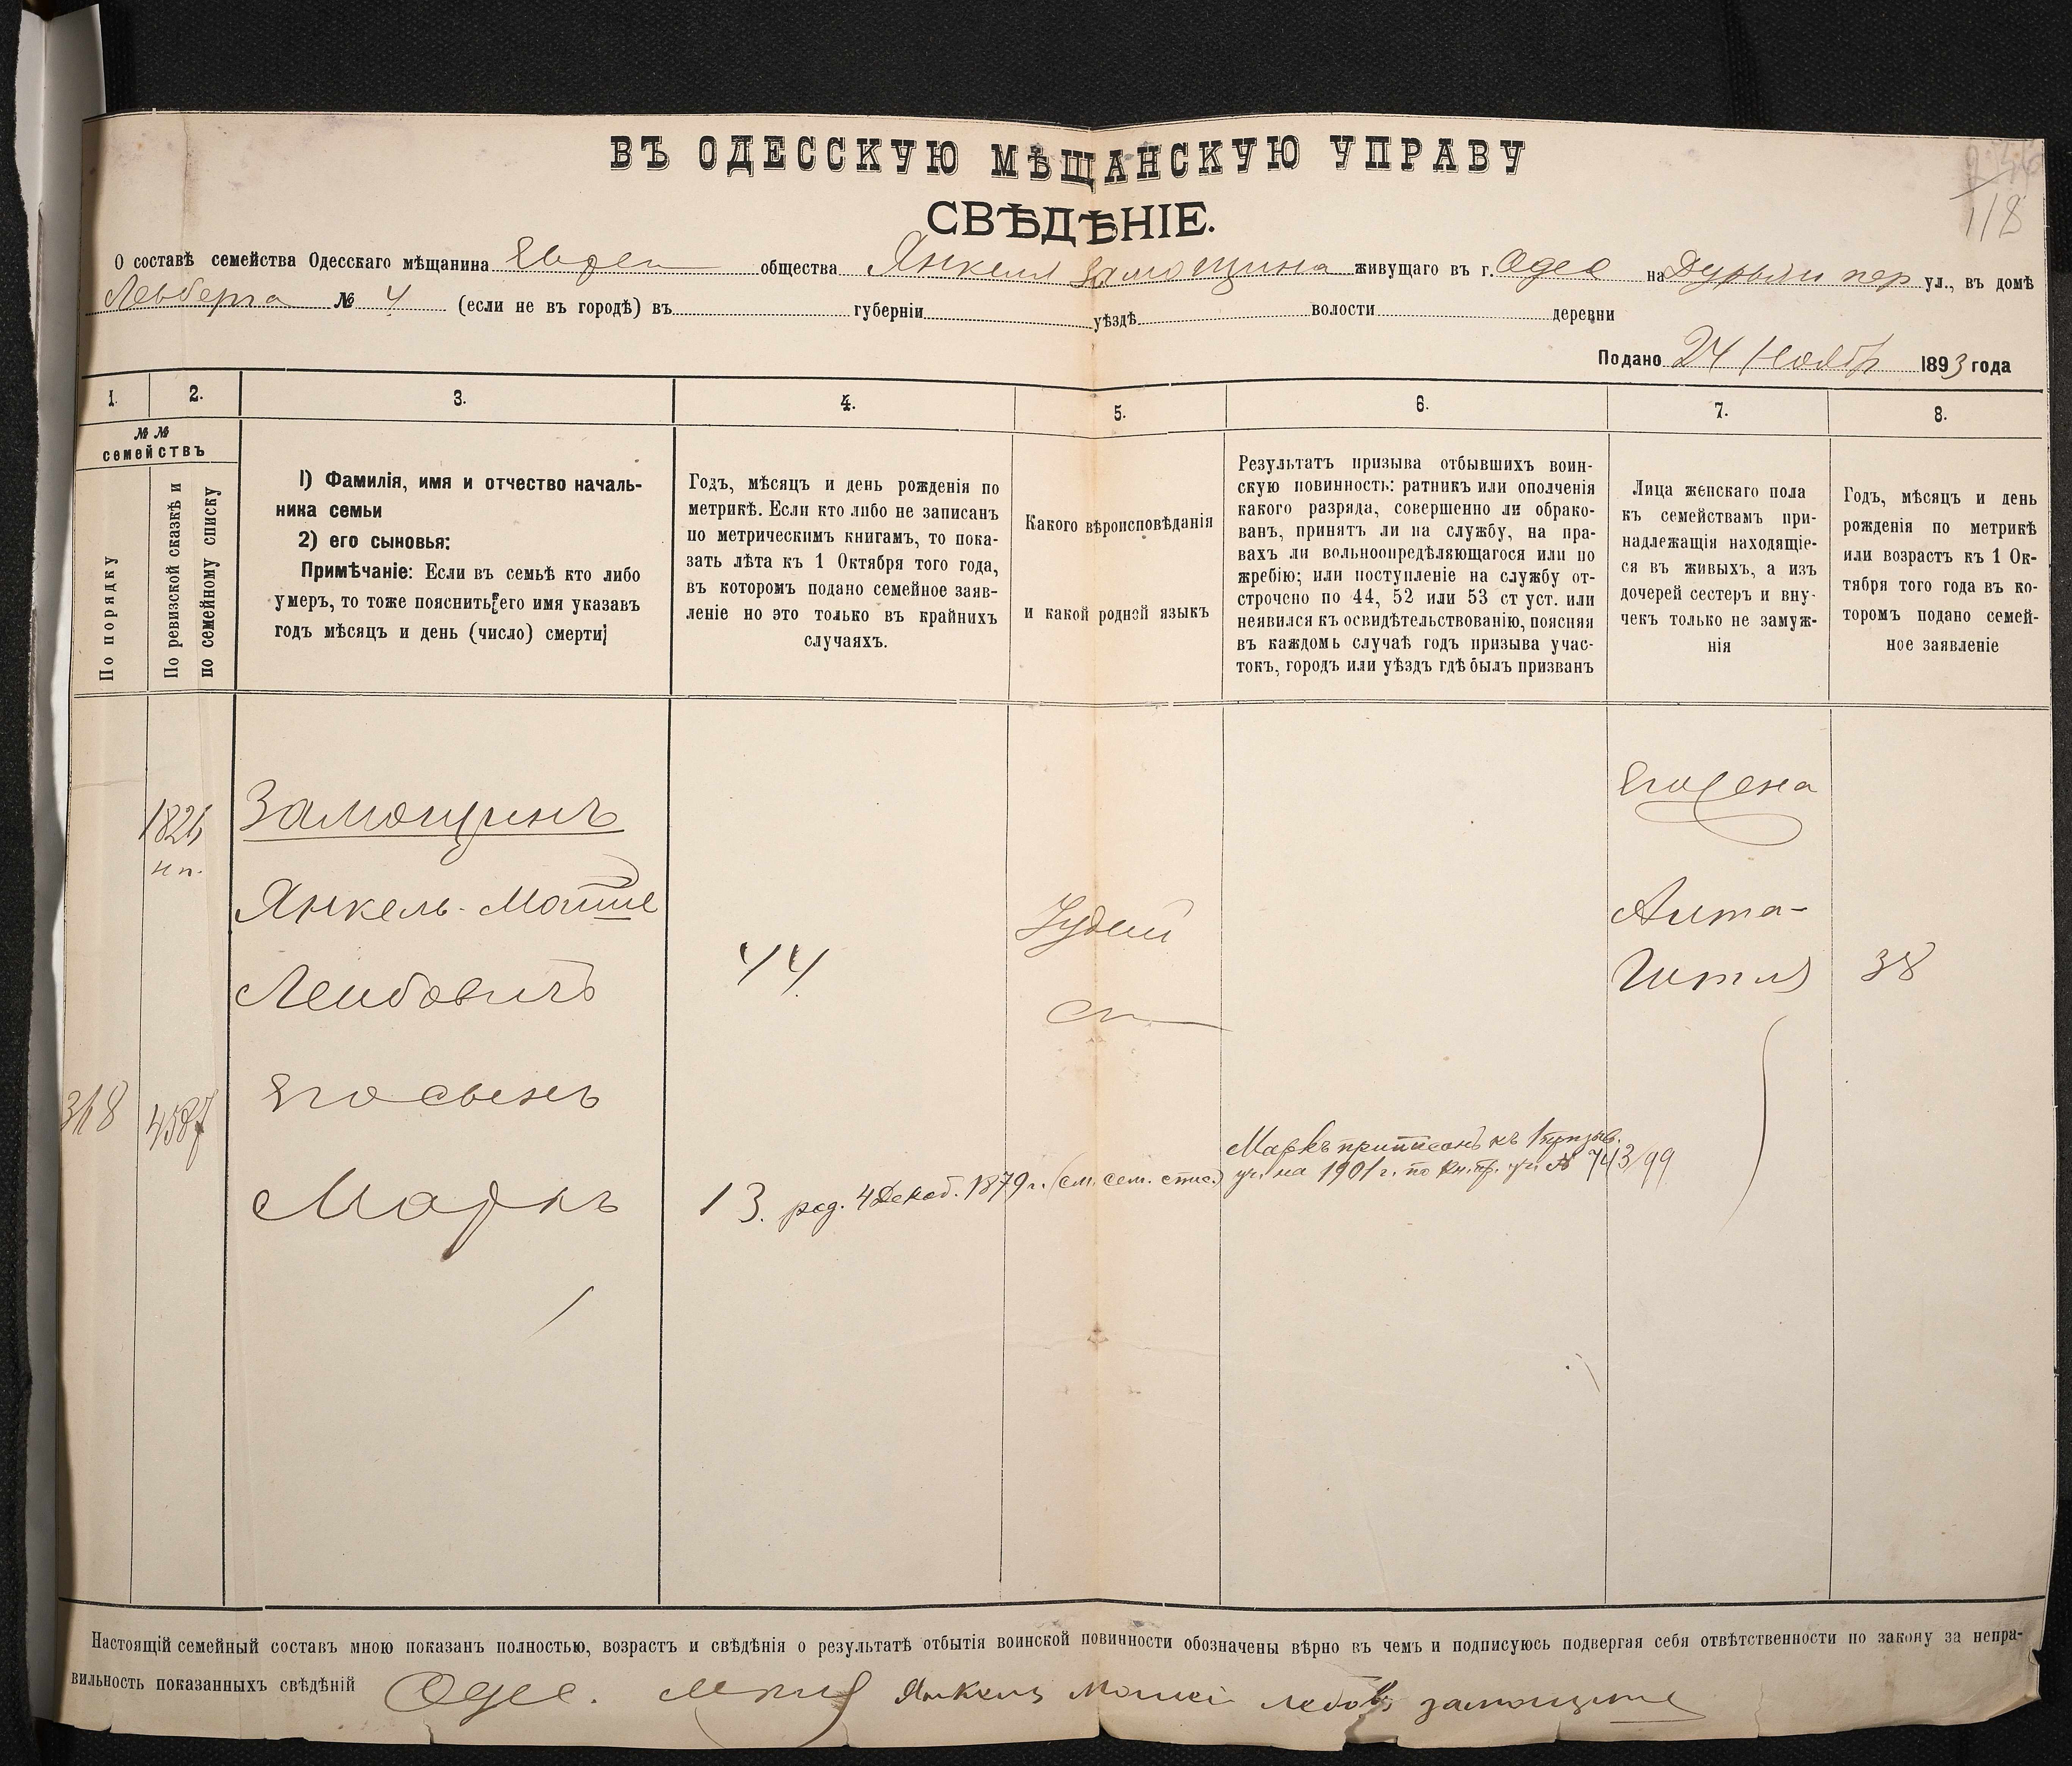 ВЪ ОДЕССКУЮ МѢЩАНСКУЮ УПРАВУ
118
СВѢДѢНІЕ.
О составѣ семейства Одесскаго мѣщанина Еврей общества Янкеля Замощина живущаго въ г. Одес на пер ул., въ домѣ
№ 4 (если не въ городѣ) въ губерніи уѣздѣ волости деревни
Подано 24 Ноябр 1893 года
1. 2. 3. 4. 5. 6. 7. 8.
№ №
семействъ
По порядку
По ревизской сказкѣ и
по семейному списку
1) Фамилія, имя и отчество началь-
ника семьи
2) его сыновья:
Примѣчаніе: Если въ семьѣ кто либо
умеръ, то тоже пояснить его имя указавъ
годъ мѣсяцъ и день (число) смерти;
Годъ, мѣсяцъ и день рожденія по
метрикѣ. Если кто либо не записанъ
по метрическимъ книгамъ, то пока-
зать лѣта къ 1 Октября того года,
въ которомъ подано семейное заяв-
леніе но это только въ крайнихъ
случаяхъ.
Какого вѣроисповѣданія
и какой родной языкъ
Результатъ призыва отбывшихъ воин-
скую повинность: ратникъ или ополченія
какого разряда, совершенно ли обрако-
ванъ, принятъ ли на службу, на пра-
вахъ ли вольноопредѣляющагося или по
жребію; или поступленіе на службу от-
строчено по 44, 52 или 53 ст уст. или
неявился къ освидѣтельствованію, поясняя
въ каждомъ случаѣ годъ призыва учас-
токъ, городъ или уѣздъ гдѣ былъ призванъ
Лица женскаго пола
къ семействамъ при-
надлежащія находящіе-
ся въ живыхъ, а изъ
дочерей сестеръ и вну-
чекъ только не замуж-
нія
Годъ, мѣсяцъ и день
рожденія по метрикѣ
или возрастъ къ 1 Ок-
тября того года въ ко-
торомъ подано семей-
ное заявленіе
Замощинъ
Его жена
н п.
Янкель-Мошше
Іудей
Лейбовичъ
44
Гитля 38
Его сынъ
4587
Маркъ
13. род. 4 Декаб. 1879 г. (см. сем. спис.)
Маркъ приписанъ къ 1 призыв.
уч. на 1901 г. по кн. пр. уч. № 743/99
Настоящій семейный составъ мною показанъ полностью, возрастъ и свѣдѣнія о результатѣ отбытія воинской повинности обозначены вѣрно въ чемъ и подписуюсь подвергая себя отвѣтственности по закону за непра-
вильность показанныхъ свѣдѣній Одес. Янкель Замощинъ